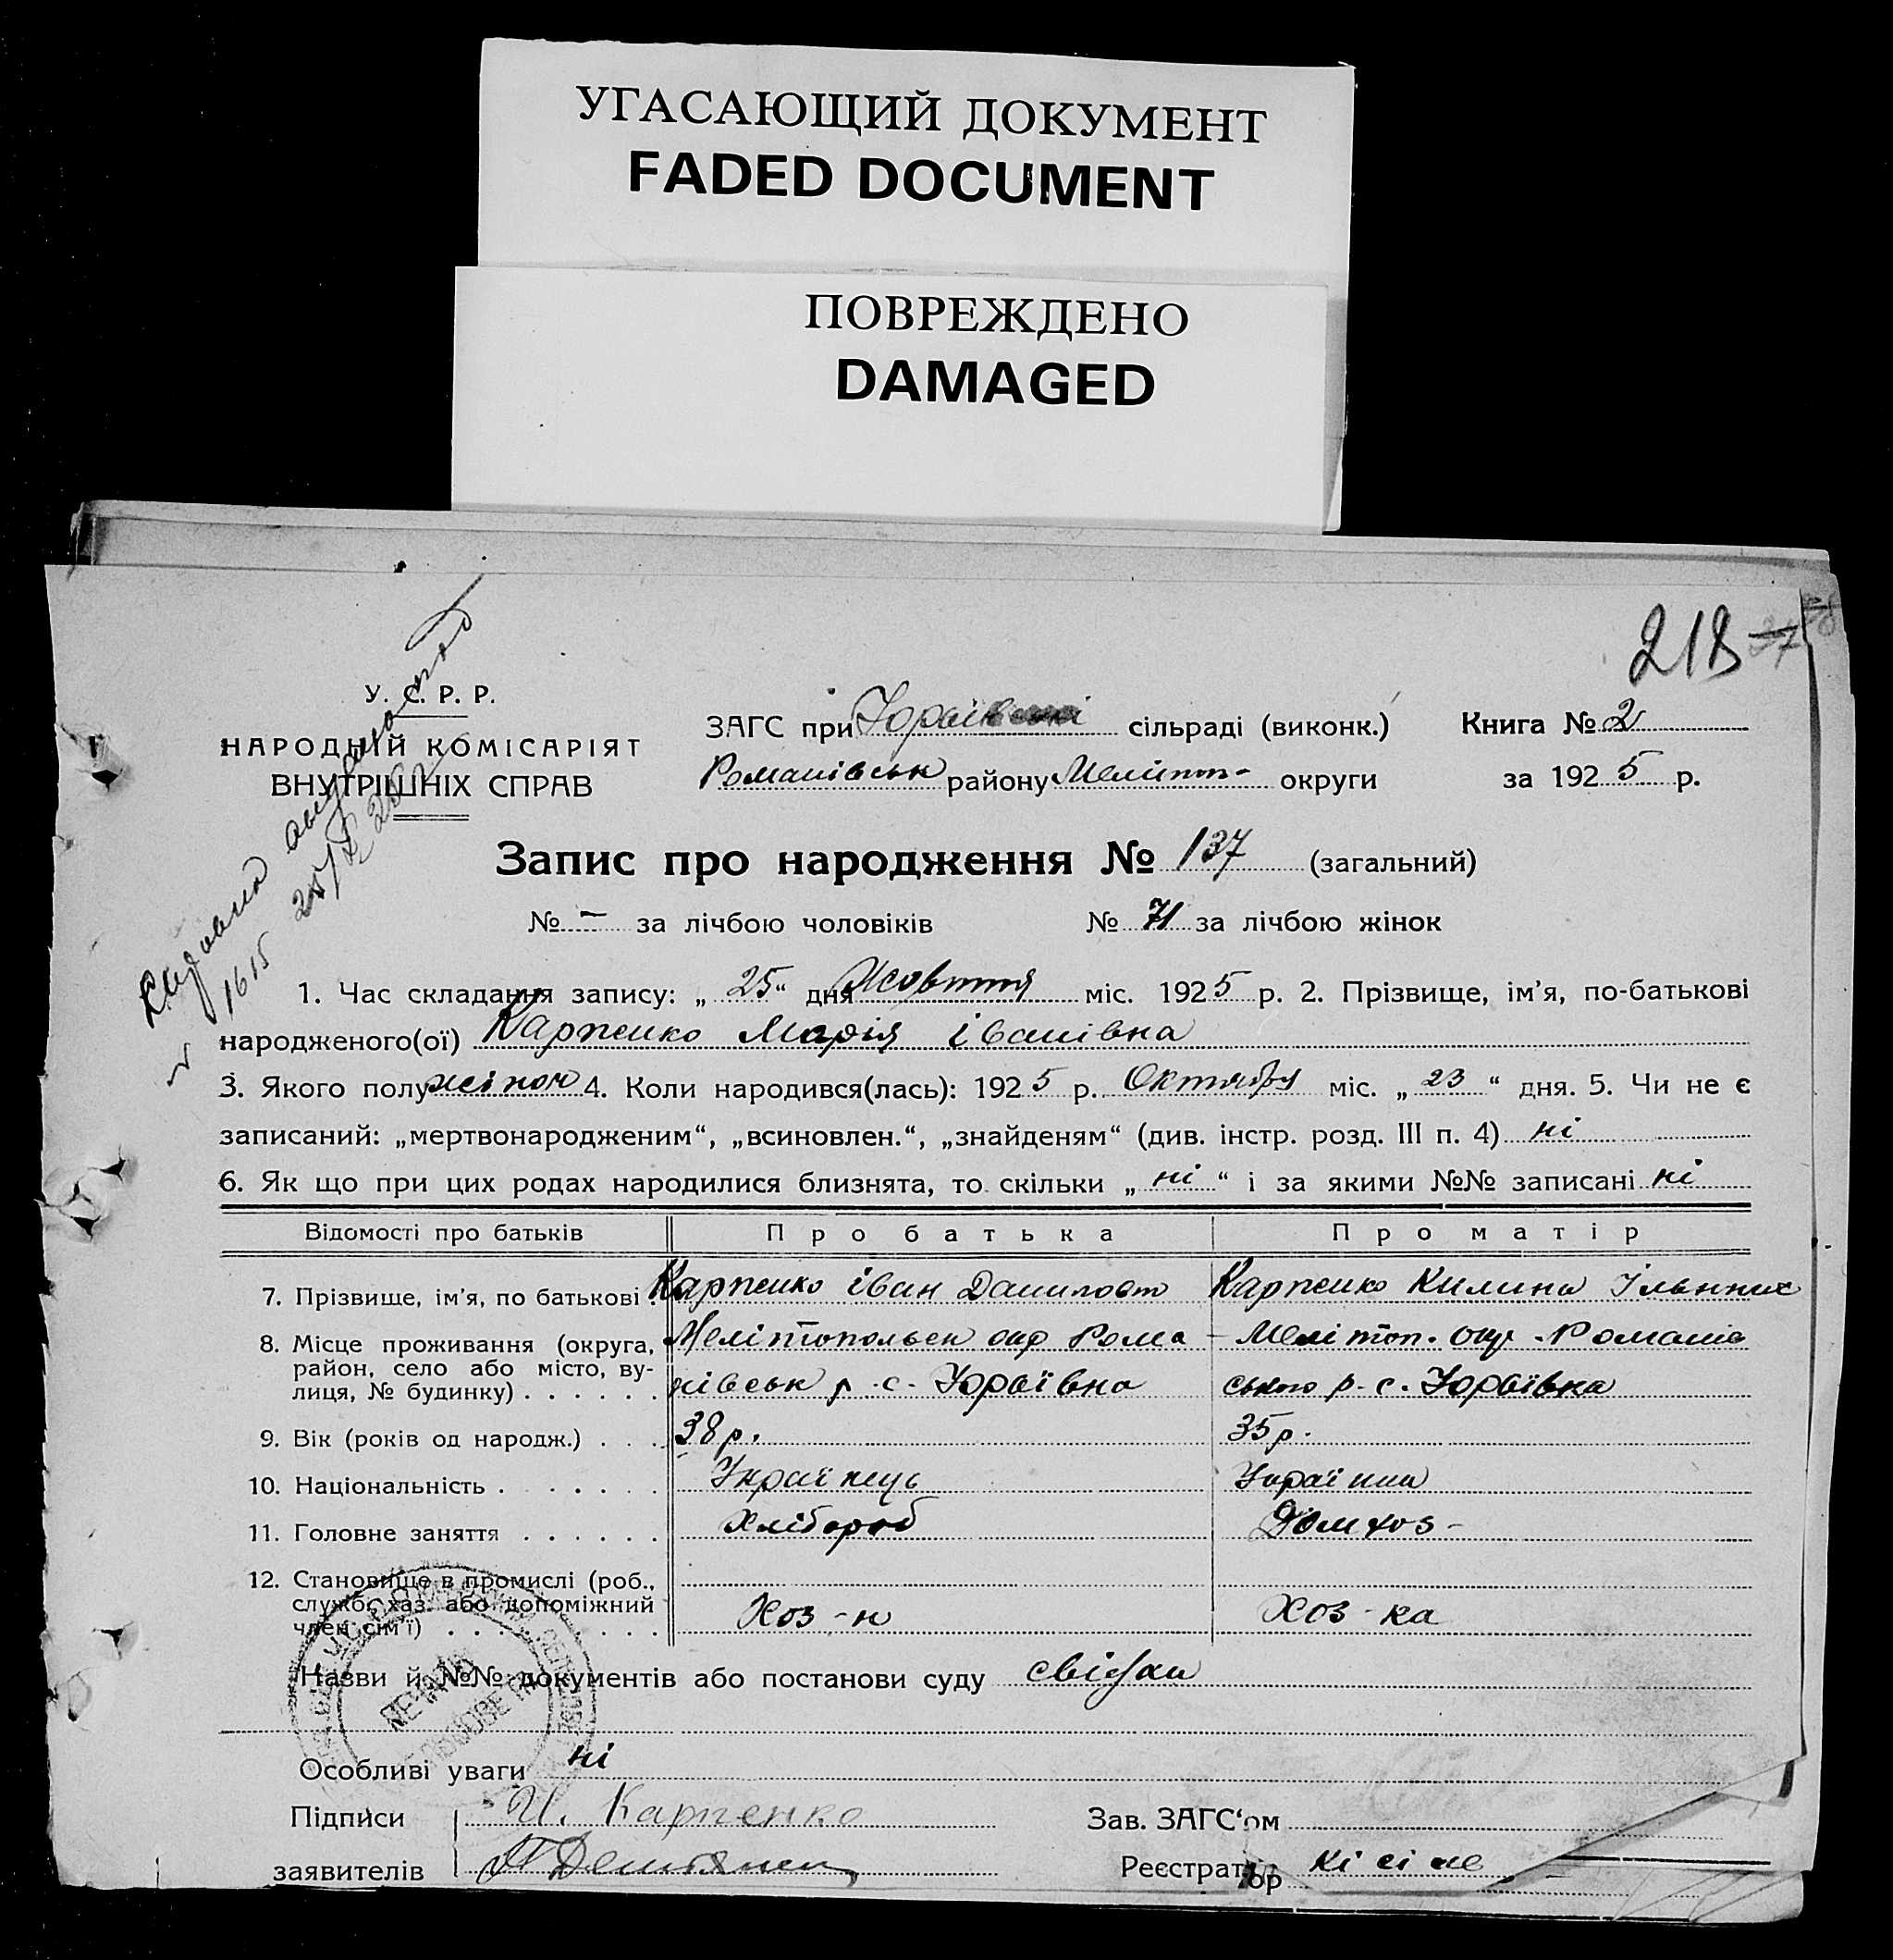 УГАСАЮЩИЙ ДОКУМЕНТ
FADED DOCUMENT
ПОВРЕЖДЕНО
DAMAGED
218
У. С. Р. Р.
НАРОДНІЙ КОМІСАРІЯТ
ВНУТРІШНІХ СПРАВ
ЗАГС при сільраді (виконк.) Книга № 2
Романівськ району Меліт- округи за 1925 р.
Запис про народження № 137 (загальний)
№ – за лічбою чоловіків № 71 за лічбою жінок
1615
1. Час складання запису: „ 25 “ дня Жовтня міс. 1925 р. 2. Прізвище, ім’я, по-батькові
народженого(ої) Карпенко Марія Іванівна
3. Якого полу жіноч 4. Коли народився(лась): 1925 р. Октября міс. „ 23 “ дня. 5. Чи не є
записаний: „мертвонародженим“, „всиновлен.“, „знайденям“ (див. інстр. розд. III п. 4) ні
6. Як що при цих родах народилися близнята, то скільки „ ні “ і за якими №№ записані ні
Відомості про батьків Про батька Про матір
7. Прізвище, ім’я, по батькові . Карпенко Іван Данилович Карпенко Килина
8. Місце проживання (округа, район, село або місто, вулиця, № будинку) . . . . . .
Мелітопольськ окр Рома - Мелітоп. окр. Романів
нівськ р. с. Юраївка ського р. с. Юраївка
9. Вік (років од народж.) . . . 38 р. 35 р.
10. Національність . . . . . . . Українець Українка
11. Головне заняття . . . . . . Хлібороб Дом хоз-
12. Становище в промислі (роб.,
служб. хаз. або допоміжний
член сім’ї) . . . . . . . . . Хоз-н Хоз-ка
Назви й №№ документів або постанови суду свідки
Особливі уваги ні
Підписи И. Карпенко Зав. ЗАГС‘ом
заявителів Реєстратор